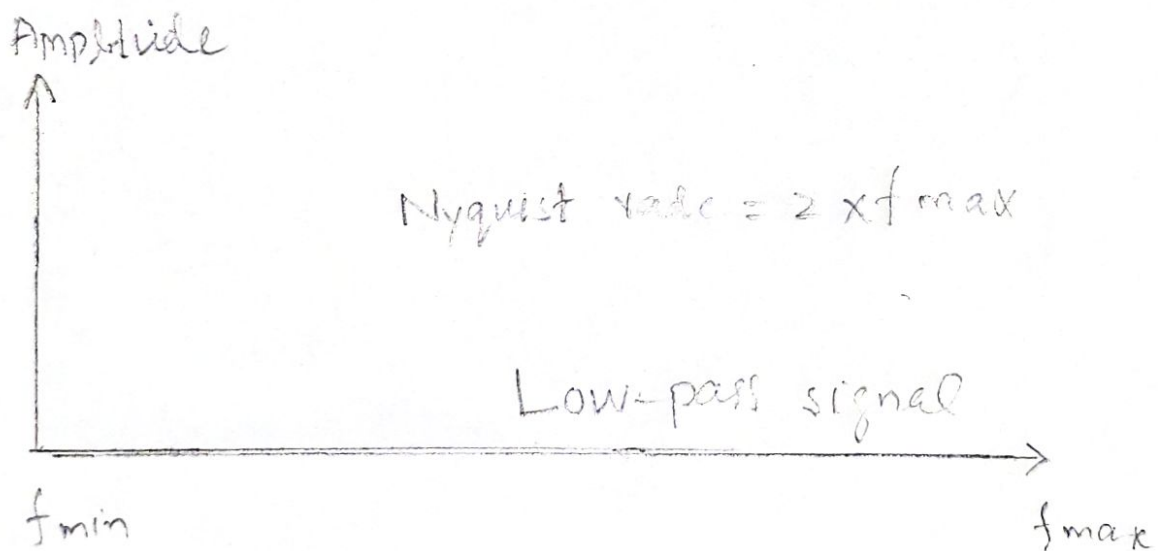 Amplitude
Nyquist rate = 2 x f max
Low-pass signal
f min
f max